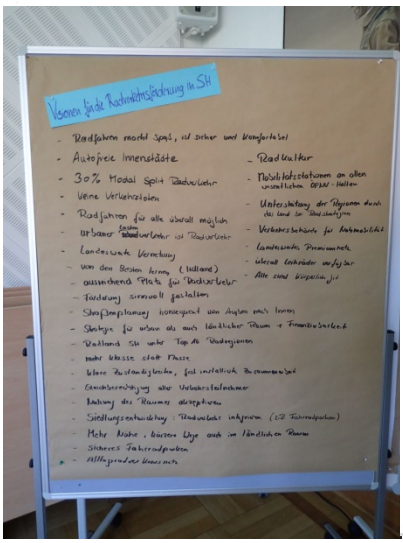 Visionen für die Radverkehrsförderung in SH
- Radfahren macht Spaß, ist sicher und komfortabel
- Autofreie Innenstädte
- 30% Modal Split Radverkehr
- Keine Verkehrstoten
- Radfahren für alle überall möglich
- urbaner Lasten ist Radverkehr
- Landesweite Vernetzung
- von den Besten lernen (Holland)
- ausreichend Platz für Radverkehr
- Förderung sinnvoll gestalten
- Straßenplanung konsequent von Außen nach Innen
- Strategie für urbanen als auch ländlicher Raum + Finanzierbarkeit
- Radland SH unter Top 10 Radregionen
- mehr Klasse statt Masse
- klare Zuständigkeiten, Zusammenarbeit
- Gleichberechtigung aller Verkehrsteilnehmer
- Nutzung des Raumes akzeptieren
- Siedlungsentwicklung: Radverkehr integrieren (z.B. Fahrradparken)
- Mehr Nähe, kürzere Wege auch im ländlichen Raum
- Sicheres Fahrradparken
- Alltagsradverkehrsnetz
- Radkultur
- Mobilitätsstationen an allen
wesentlichen ÖPNV-Halten
- Unterstützung der Regionen durch
das Land bei Radstrategien
- Verkehrsbehörde für Nahmobilität
- Landesweites Premiumnetz
- überall Leihräder verfügbar
- Alle sind körperlich fit